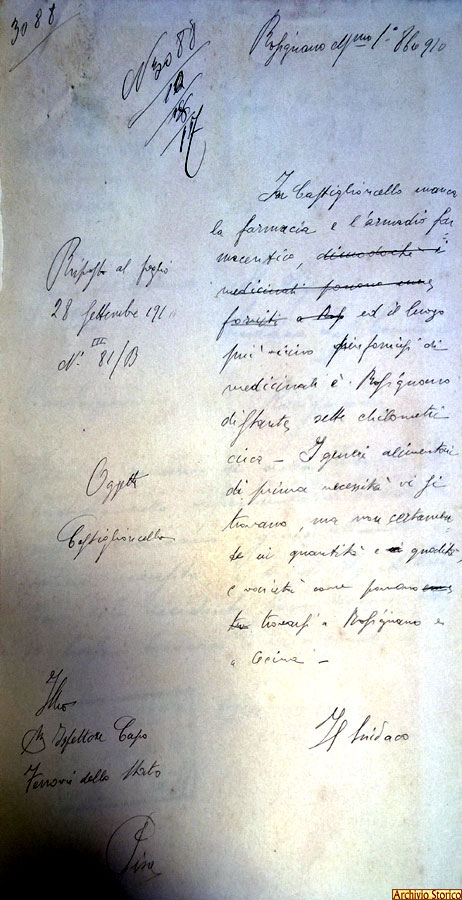 3088
N 3088
12
17
Rosignano Mmo 1° 8bre 910
In Castiglioncello manca
la farmacia e l'armadio far
maceutico, dimodochè i
medicinali possono
forniti a Ros ed il luogo
più vicino per fornirsi di
medicinali è Rosignano
distante sette chilometri
circa - I generi alimentari
di prima necessità vi si
trovano, ma non certamen
te in quantità e qualità,
e varietà come possono
trovarsi a Rosignano e
a Cecina -
Risposta al foglio
28 Settembre 191
N. III 81/B
Oggetto
Castiglioncello
Il Sindaco
Illmo
Sig Ispettore Capo
Ferrovie dello Stato
Pisa
Archivio Storico